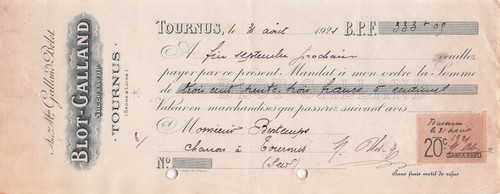 TOURNUS, le 31 août 1921 B.P.F. 333 f 05
A fin septembre prochain veuillez
payer par ce présent Mandat à mon ordre la Somme
de trois cent trente trois francs 5 centimes
Valeur en marchandises que passerez suivant avis
A Monsieur
charron à Tournus
Nº
Anc. Mon Galland-Belot
BLOT-GALLAND
SUCCESSEUR
TOURNUS
(SAÔNE & LOIRE)
Tournus
le 31 août
1921
20c
Sans frais motif de refus